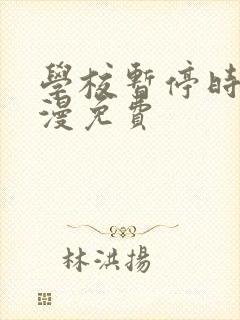 學校暫停時
漫免費
林洪揚